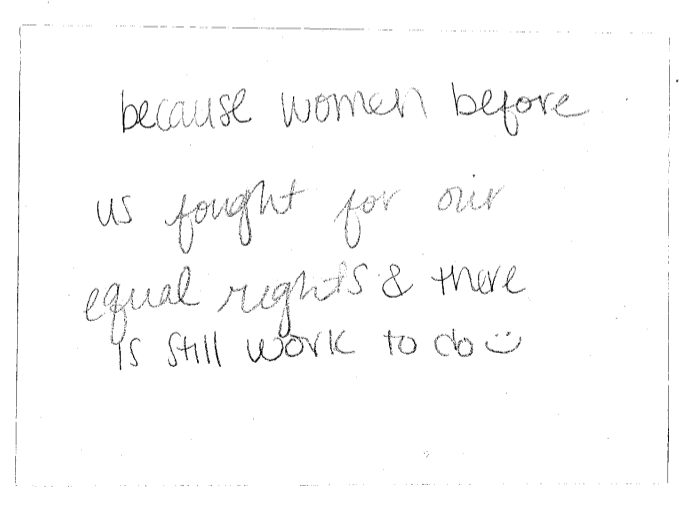 because women before
us fought for our
equal rights & there
is still work to do :)